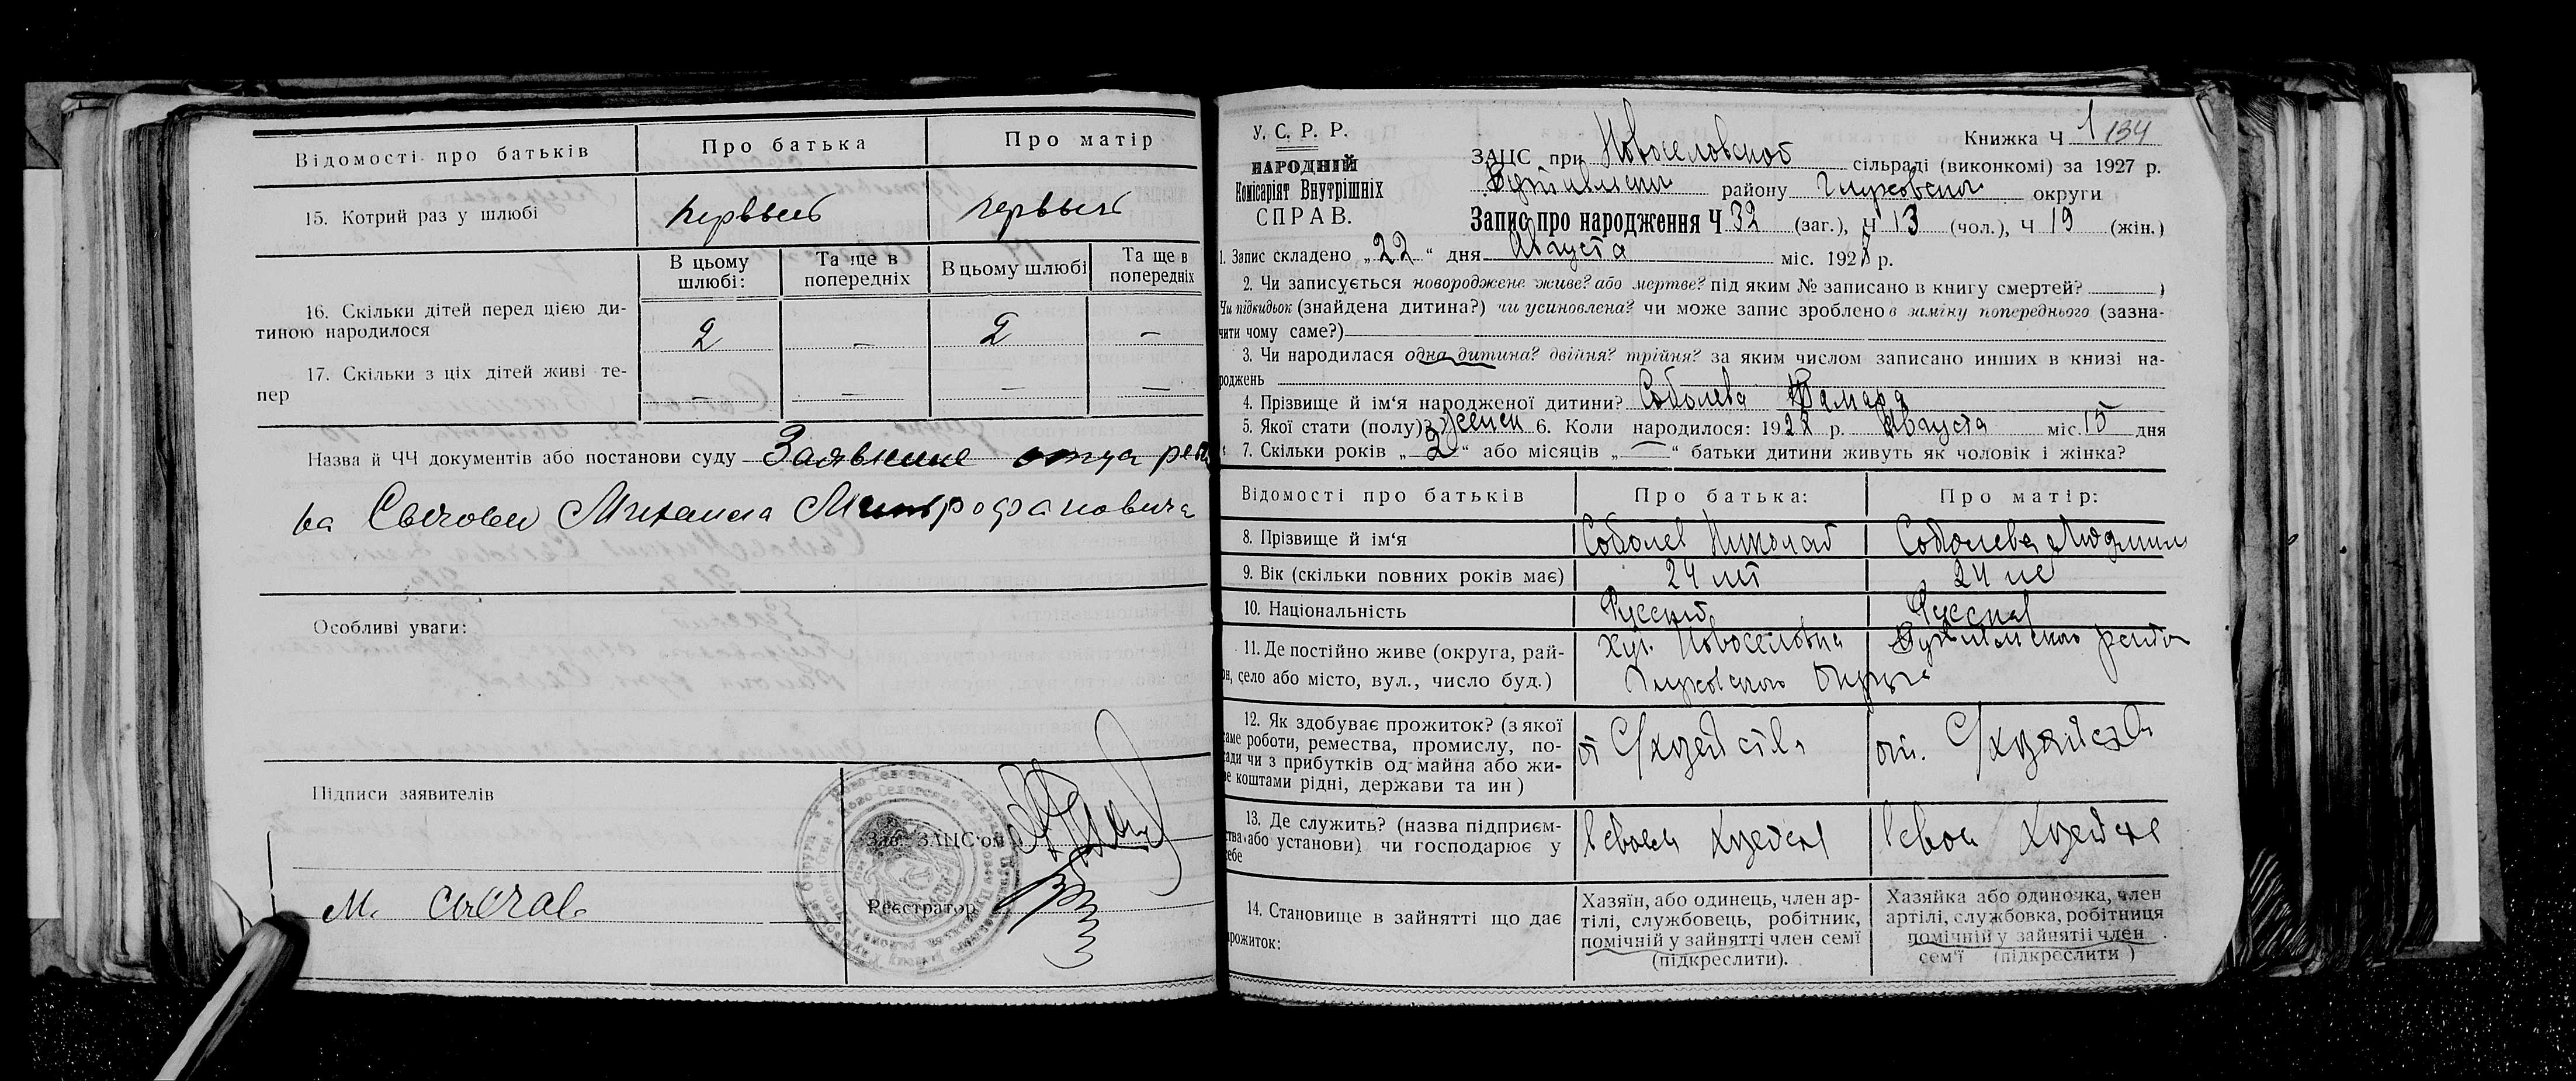 Відомості про батьків
Про батька
Про матір
15. Котрий раз у шлюбі
первый
первый
В цьому шлюбі:
Та ще в попередніх
В цьому шлюбі
Та ще в попередніх
16. Скільки дітей перед цією ди-
тиною народилося
2
—
2
—
17. Скільки з ціх дітей живі те-
пер
—
—
—
—
Назва й ЧЧ документів або постанови суду Заявление отца
Михаила Митрофановича
Особливі уваги:
Підписи заявителів
М.
Зав. ЗАЦС'ом
Реєстратор
У. С. Р. Р.
НАРОДНІЙ
Комісаріят Внутрішніх
СПРАВ.
Книжка Ч 1
134
ЗАЦС при Новоселовской сільраді (виконкомі) за 1927 р.
району Глуховской округи
Запис про народження Ч 32 (заг.), Ч 13 (чол.), Ч 19 (жін.)
1. Запис складено „22“ дня Августа міс. 1927 р.
2. Чи записується новороджене живе? або мертве? під яким № записано в книгу смертей? )
Чи підкидьок (знайдена дитина?) чи усиновлена? чи може запис зроблено в заміну попереднього (зазна-
чити чому саме?)
3. Чи народилася одна дитина? двійня? трійня? за яким числом записано инших в книзі на-
роджень
4. Прізвище й ім'я народженої дитини? Соболева Тамара
5. Якої стати (полу)? женск 6. Коли народилося: 1927 р. Августа міс. 15 дня
7. Скільки років „2“ або місяців „—“ батьки дитини живуть як чоловік і жінка?
Відомості про батьків
Про батька:
Про матір:
8. Прізвище й ім'я
Соболев Николай
Соболева Людмила
9. Вік (скільки повних років має)
24 лет
24 ле
10. Національність
Русский
Русская
11. Де постійно живе (округа, рай-
он, село або місто, вул., число буд.)
хут. Новоселовка Путивльского района
Глуховского Округа
12. Як здобуває прожиток? (з якої
саме роботи, ремества, промислу, по-
сади чи з прибутків од майна або жи-
ве коштами рідні, держави та ин)
от С/хозяйства
от. С/хозяйства
13. Де служить? (назва підприєм-
ства або установи) чи господарює у
себе
14. Становище в зайнятті що дає
прожиток:
Хазяїн, або одинець, член ар-
тілі, службовець, робітник,
помічній у зайнятті член семї
(підкреслити).
Хазяйка або одиночка, член
артілі, службовка, робітниця
помічній у зайнятії член
сем'ї (підкреслити)